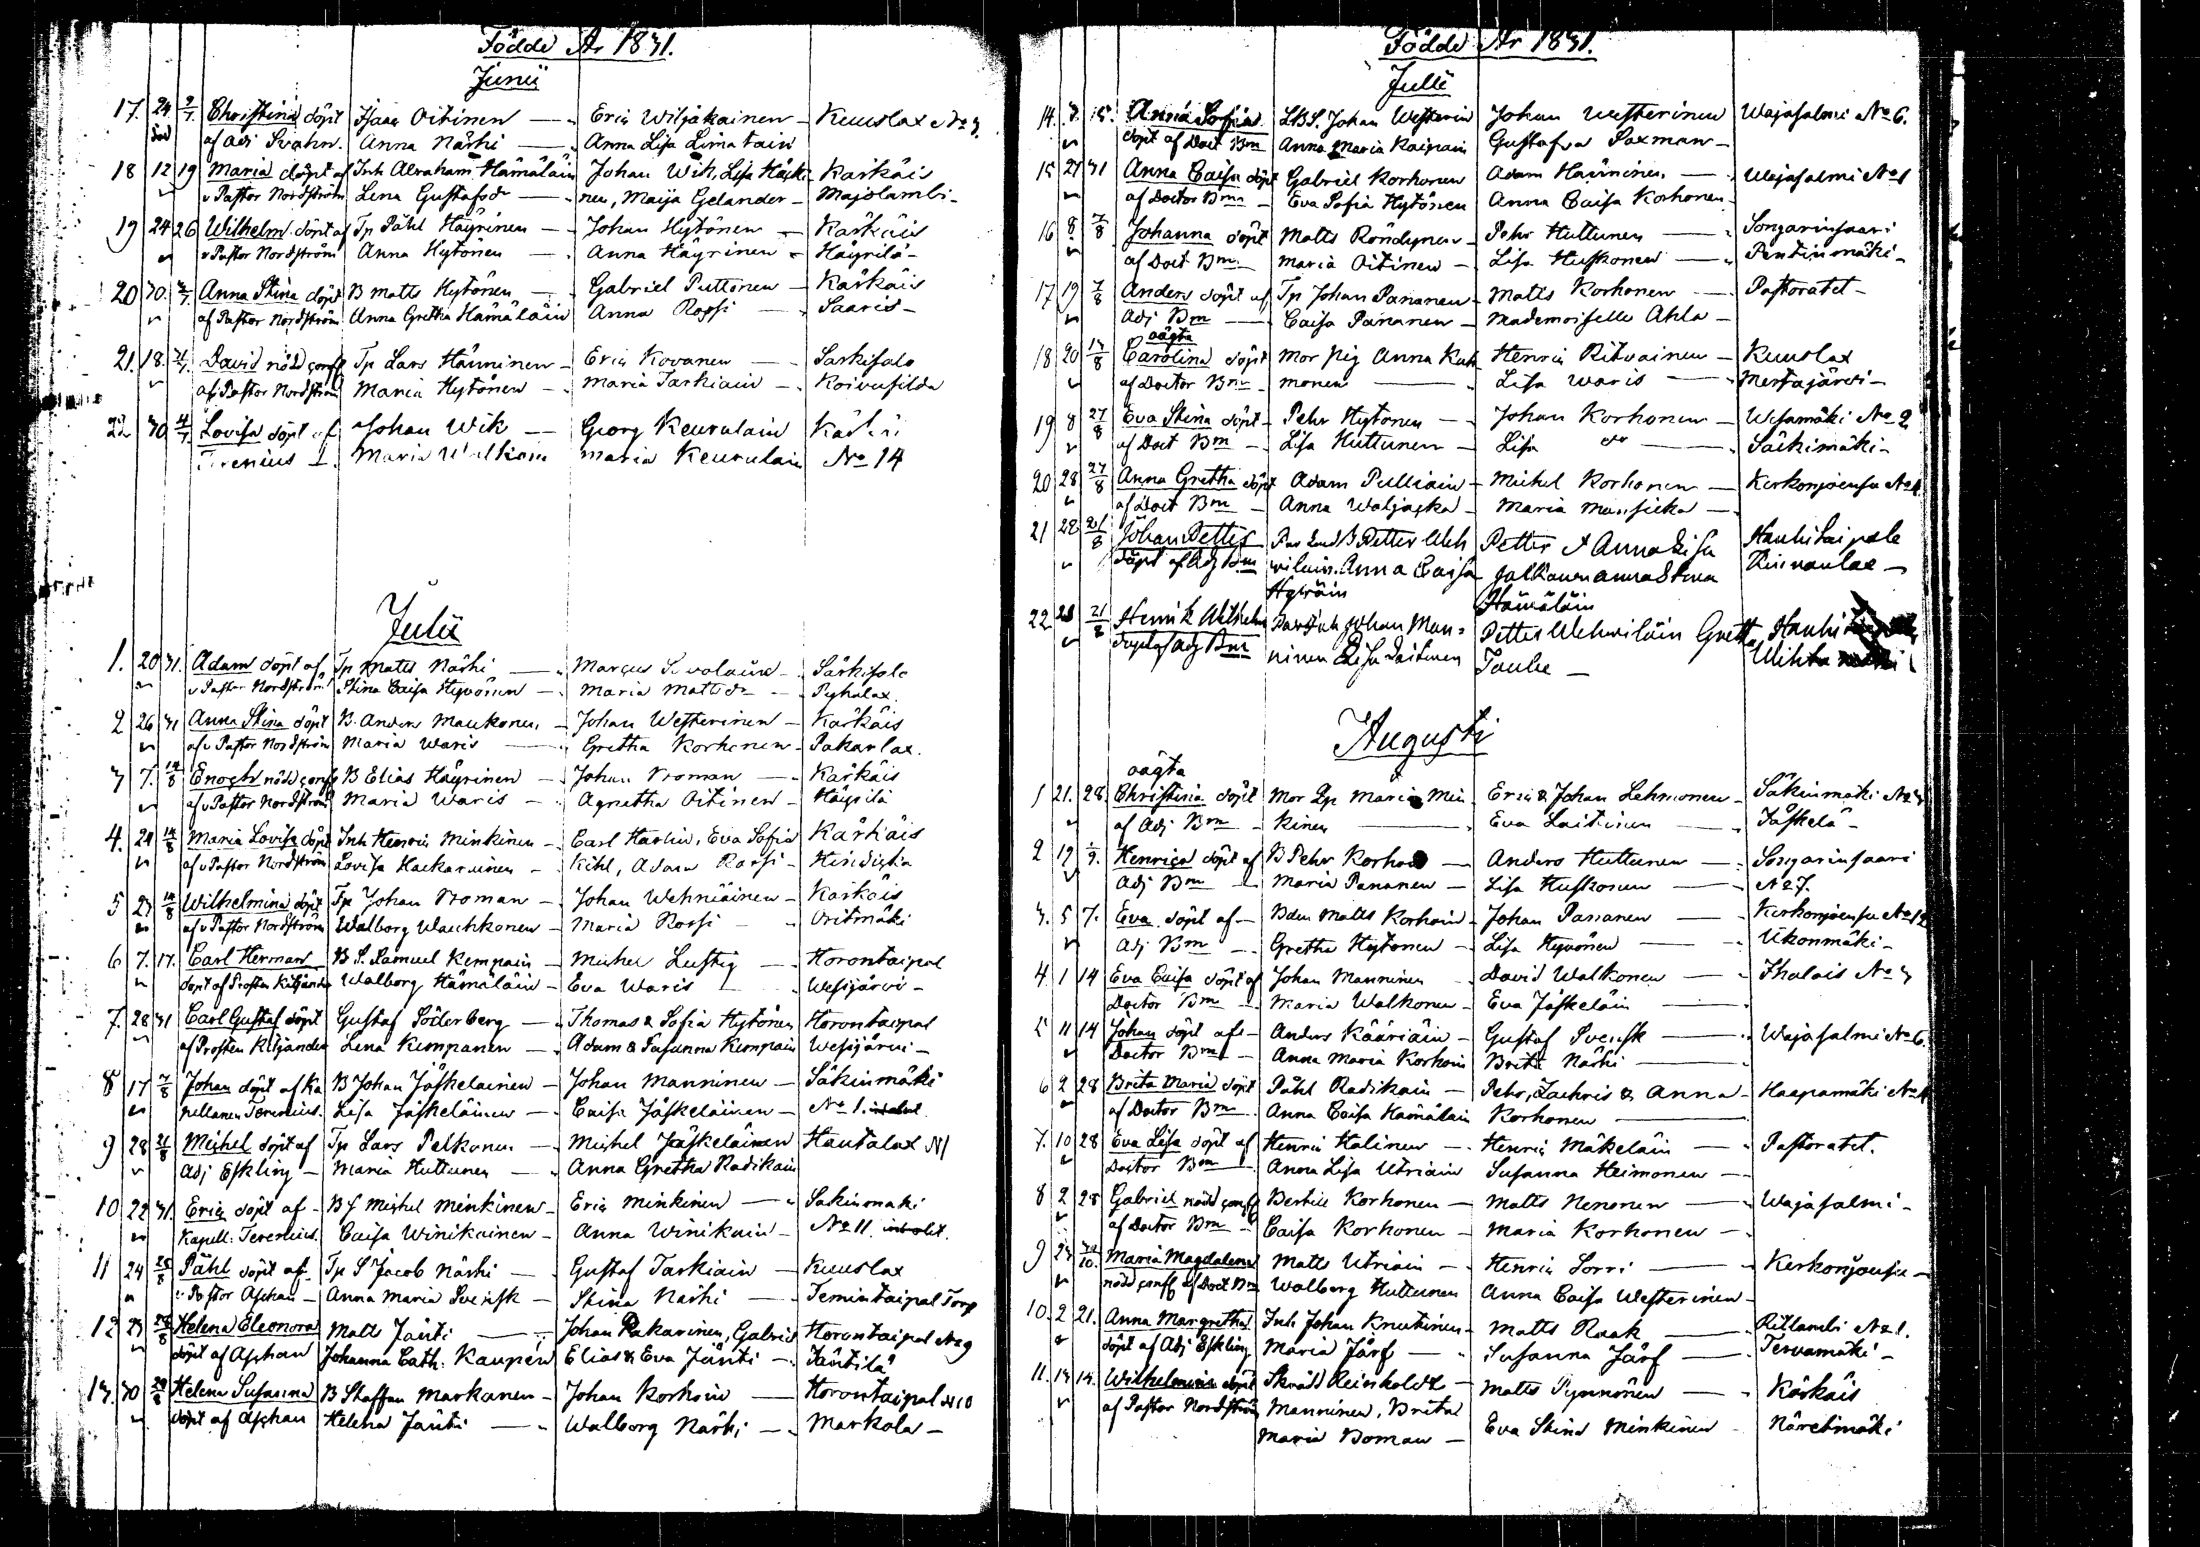 Födde År 1831.
Junii
17. 24 2/7 Christina döpt Isaac Oitinen — Eric Wiljakainen — Kuuslax No 3.
af Adj Svahn. Anna Närhi — Anna Lisa Limatain
18 12 19 Maria döpt af Inh Abraham Hämäläin Johan Wik, Lisa Häyri- Karkäis
v Pastor Nordström Lena Gustafsdr — nen, Maija Gelander — Majolambi —
19 24 26 Wilhelm döpt af Tp Påhl Häyrinen — Johan Hytönen — Karkäis
v Pastor Nordström Anna Hytönen — Anna Häyrinen — Häyrilä —
20 30 Anna Stina döpt B Matts Hytönen — Gabriel Puttonen — Karkäis
af Pastor Nordström Anna Gretha Hämäläin Anna Rossi — Saaris —
21. 18. David nöd conf Tp Lars Hänninen — Eric Kovanen — Sarkisalo
af Pastor Nordström Maria Hytönen — Maria Tarkiain — Koivusilda
22 30 Lovisa döpt af Johan Wik — Georg Keurulain
Terenius Maria Walkon Maria Keurulain No 14
Julii
1. 20 31. Adam döpt af Tp Matts Närhi — Marcus Savolain — Särkisalo
v Pastor Nordström Stina Caisa Hyvönen — Maria Mattsdr — Pyhälax.
2 26 31 Anna Stina döpt B. Anders Maukonen — Johan Westerinen — Karkäis
af v Pastor Nordström Maria Waris — Gretha Korhonen — Pakarlax.
3 7. 14/8 Enoch nöd conf B Elias Häyrinen — Johan Vroman — Karkäis
af v Pastor Nordström Maria Waris — Agnetha Oitinen — Häyrilä
4. 24 14/8 Maria Lovisa döpt Inh Henric Minkinen — Carl Harlin, Eva Sofia Karkäis
af v Pastor Nordström Lovisa Hackarainen — Kihl, Adam Rossi —
5 23 14/8 Wilhelmina döpt Tp Johan Vroman — Johan Wehniäinen — Karkäis
af v Pastor Nordström Walborg Wauhkonen — Maria Rossi — Oritmäki
6 7. 17. Carl Herman B S. Samuel Kempain — Michel Lustig — Horontaipal
döpt af Prosten Kiljander Walborg Hämäläin — Eva Waris — Wesijärvi —
7. 28 31 Carl Gustaf döpt Gustaf Söderberg — Thomas & Sofia Hytönen Horontaipal
af Prosten Kiljander Lena Kempanen — Adam & Susanna Kempain Wesijärvi —
8 17 7/8 Johan döpt af Ka B Johan Jäskelainen — Johan Manninen — Säkinmäki
pellanen Terenius. Lisa Jäskeläinen — Caisa Jäskeläinen — No 1.
9 28 21/8 Michel döpt af Tp Lars Pelkonen — Michel Jääskeläinen Hautalax N 1
Adj Eskling — Maria Huttunen — Anna Gretha Radikain
10 22 31. Eric döpt af — B S Michel Minkinen — Eric Minkinen — Säkinmäki
Kapell: Terenius. Caisa Winikainen — Anna Winikain — No 11.
11 24 25/8 Påhl döpt af Tp S Jacob Närhi — Gustaf Tarkiain — Kuuslax
v Pastor Aschan — Anna Maria Svensk — Stina Närhi — Temintaipal Torp
12 23 28/8 Helena Eleonora Matts Jänti — Johan Pakarinen, Gabriel Horontaipal No 9
döpt af Aschan Johanna Cath: Kaupén Elias & Eva Jänti — Jäntilä
13 30 29/8 Helena Susanna B Staffan Markanen — Johan Korhoin — Horontaipal N 10
döpt af Aschan Helena Jänti — Walborg Närhi — Markola —
Födde År 1831.
Julii
14. 3. 15. Anna Sofia LBS. Johan Westerin Johan Westerinen Wajasalmi No 6.
döpt af Doct Bm Anna Maria Kaipain Gustafva Saxman —
15 27 31 Anna Caisa döpt Gabriel Korhonen Adam Hänninen — Wajasalmi No 1
af Doctor Bm — Eva Sofia Hytönen Anna Caisa Korhonen —
16 8 7/8 Johanna döpt Matts Röndynen — Pehr Huttunen — Songarinsaari
af Doct Bm — Maria Oitinen — Lisa Huskonen — Pentinmäki —
17 19 7/8 Anders döpt af Tp Johan Pananen — Matts Korhonen — Pastoratet —
Adj Bm — Caisa Pananen — Mademoiselle Ahla —
oägta
18 20 14/8 Carolina döpt Mor pig Anna Kuh Henric Ritvainen — Kuuslax
af Doctor Bm — monen — Lisa Waris — Mertajärvi —
19 8 27/8 Eva Stina döpt — Pehr Hytönen — Johan Korhonen — Wesamäki No 2
af Doct Bm — Lisa Huttunen — Lisa dr — Säikimäki —
20 28 27/8 Anna Gretha döpt Adam Pulliain — Michel Korhonen — Kerkonjoensu No 4
af Doct Bm — Anna Waljacka — Maria Mansicka —
21 28 21/8 Johan Petter Petter Weh Petter & Anna Lisa Hauhitaipale
döpt af Adj Bm wilain. Anna Caisa Jalkanen Anna Stina
Hyvöin Hämäläin
22 28 21/8 Henrik Wilhelm Johan Man- Petter Wehwiläin Gretta
döpt af Adj Bm ninen Lisa Laitinen —
Augusti
oägta
1 21. 28 Christina döpt Mor Pp Maria Min Eric & Johan Lehmonen — Säkinmäki No 3
af Adj Bm — kinen — Eva Laitinen — Jäskelä —
2 19 1/9. Henrica döpt af B Pehr Korho — Anders Huttunen — Songarinsaari
Adj Bm — Maria Pananen — Lisa Huskonen — No 7.
3. 5 7. Eva döpt af — Bden Matts Korhoin — Johan Pananen — Kerkonjoensu No 12
Adj Bm — Gretha Hytönen — Lisa Hyvönen — Ukonmäki —
4 1 14 Eva Caisa döpt af Johan Manninen David Walkonen — Ihalais No 3
Doctor Bm — Maria Walkonen — Eva Jäskeläin —
5 11 14 Johan döpt af — Anders Kääriäin — Gustaf Svensk — Wajasalmi No 6.
Doctor Bm — Anna Maria Korhoin Brita Närhi —
6 2 28 Brita Maria döpt Påhl Radikain — Pehr, Zachris & Anna — Haapamäki No 4
af Doctor Bm — Anna Caisa Hämäläin Korhonen —
7. 10 28 Eva Lisa döpt af Henric Halinen — Henric Mäkeläin — Pastoratet.
Doctor Bm — Anna Lisa Utriain Susanna Heimonen —
8 2 28 Gabriel nöd conf Bertil Korhonen — Matts Nenonen — Wajasalmi —
af Doctor Bm — Caisa Korhonen — Maria Korhonen —
9 23 Maria Magdalena Matts Utriain — Henric Sorri — Kerkonjoensu —
nöd conf af Doct Bm Walborg Huttunen Anna Caisa Westerinen —
10. 2 21. Anna Margretha Inh Johan Knutinen — Matts Raak — Ritlambi No 1.
döpt af Adj Eskling Maria Järf — Susanna Järf — Tervamäki —
11. 14 14. Wilhelmina döpt Skrädd Reinholdt — Matts Pynnönen — Karkäis
af Pastor Nordström Manninen, Brita
Maria Boman — Eva Stina Minkinen — Närelimäki